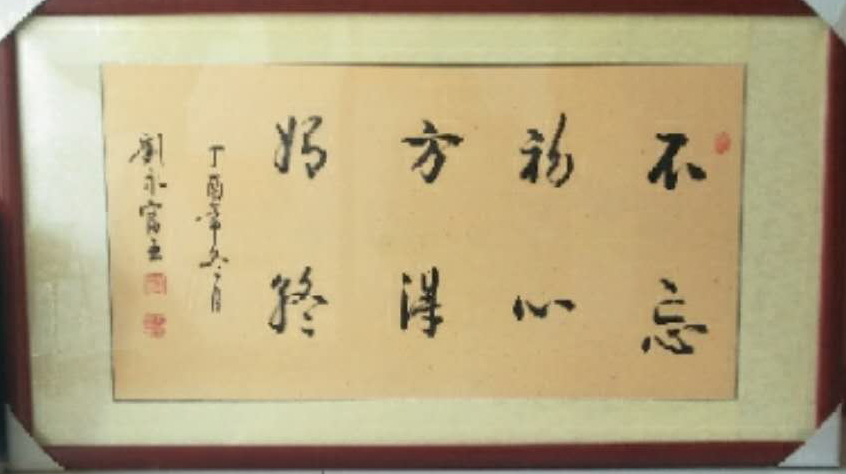 不忘
初心
方得
始终
丁酉年冬月
劉永富玉